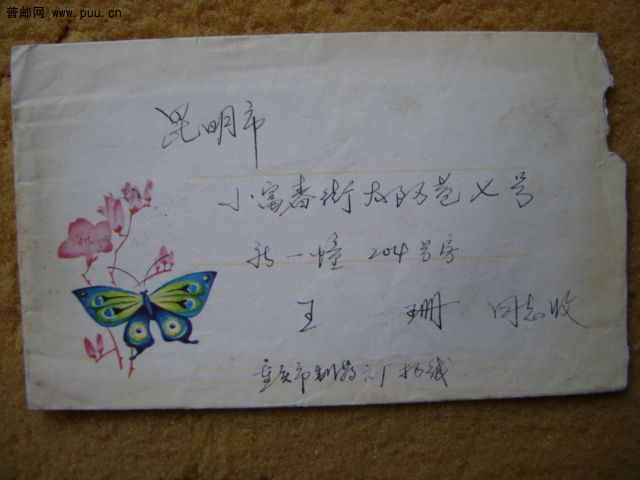 普邮网 www.puu.cn
昆明市
小富春街 巷七号
新一幢 204号
王 珊 同志收
重庆市制药六厂 杨